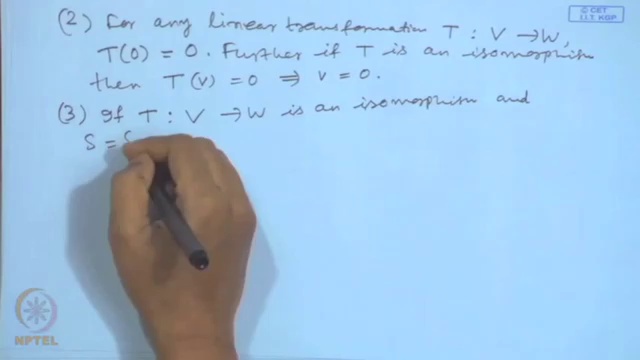 © CET
I.I.T. KGP
(2) For any linear transformation T : V → W,
T(0) = 0. Further if T is an isomorphism
then T(v) = 0 ⇒ v = 0.
(3) If T : V → W is an isomorphism and
S =
NPTEL